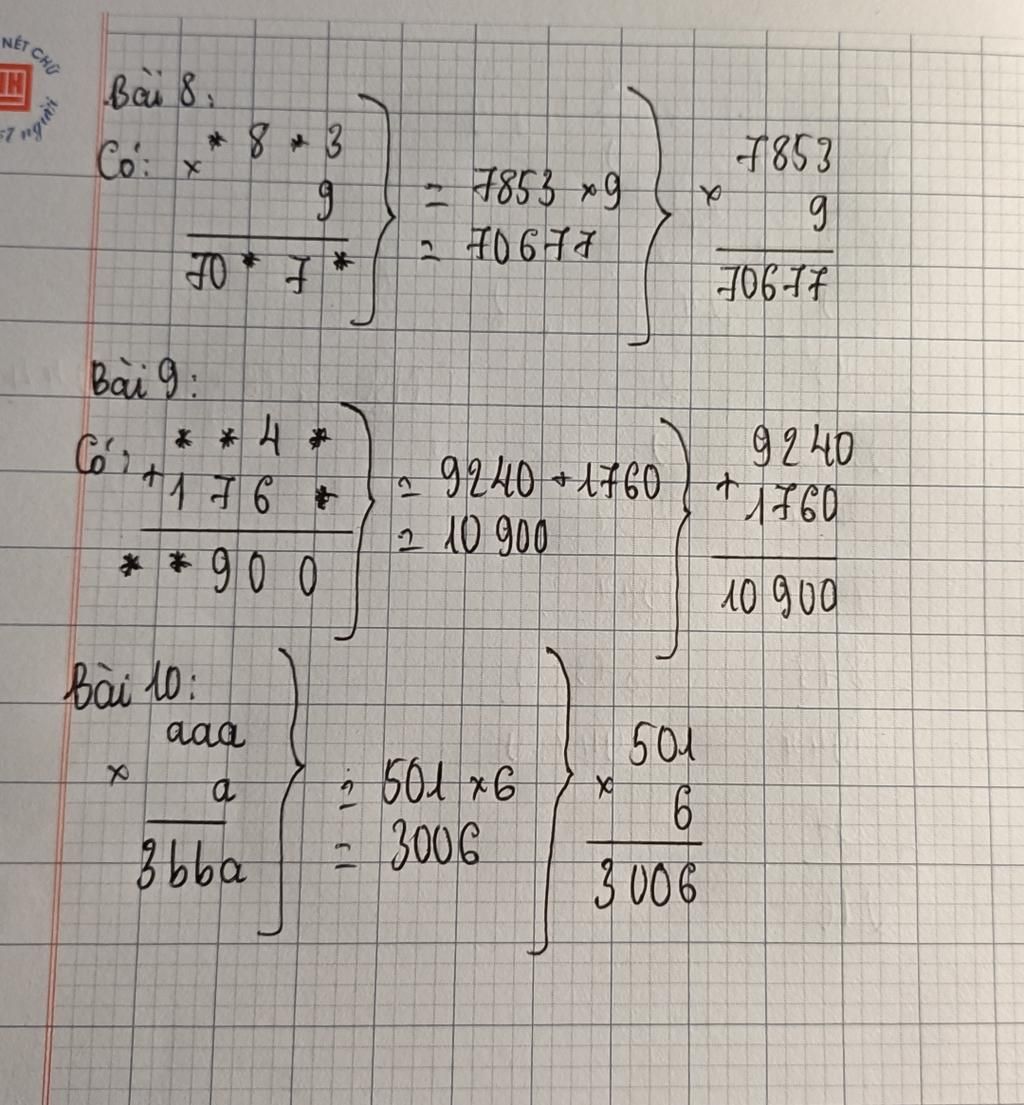 NÉT CHỮ
nết người
Bài 8:
Có: × * 8 * 3
9
70 * 7 *
= 7853 × 9
= 70677
7853
× 9
70677
Bài 9:
Có: * * 4 *
+ 1 7 6 *
* * 9 0 0
= 9240 + 1760
= 10 900
9240
+ 1760
10 900
Bài 10:
aaa
× a
3bba
= 501 × 6
= 3006
501
× 6
3 006